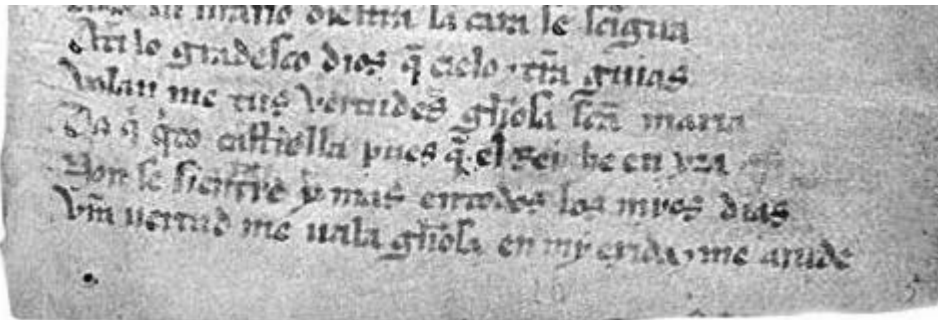 su mano diestra la cara se sãgua
Ati lo gradesco dios q̃ çielo ⁊ tr̃ra guias
Valan me tus vertudes gl̃iosa sc̃a maria
Da q̃ q̃to castiella pues q̃ el Rei he en yra
Non se sientre y mas entodos los myos dias
Vr̃a uertud me uala gl̃iosa en my exida ⁊ me aiude